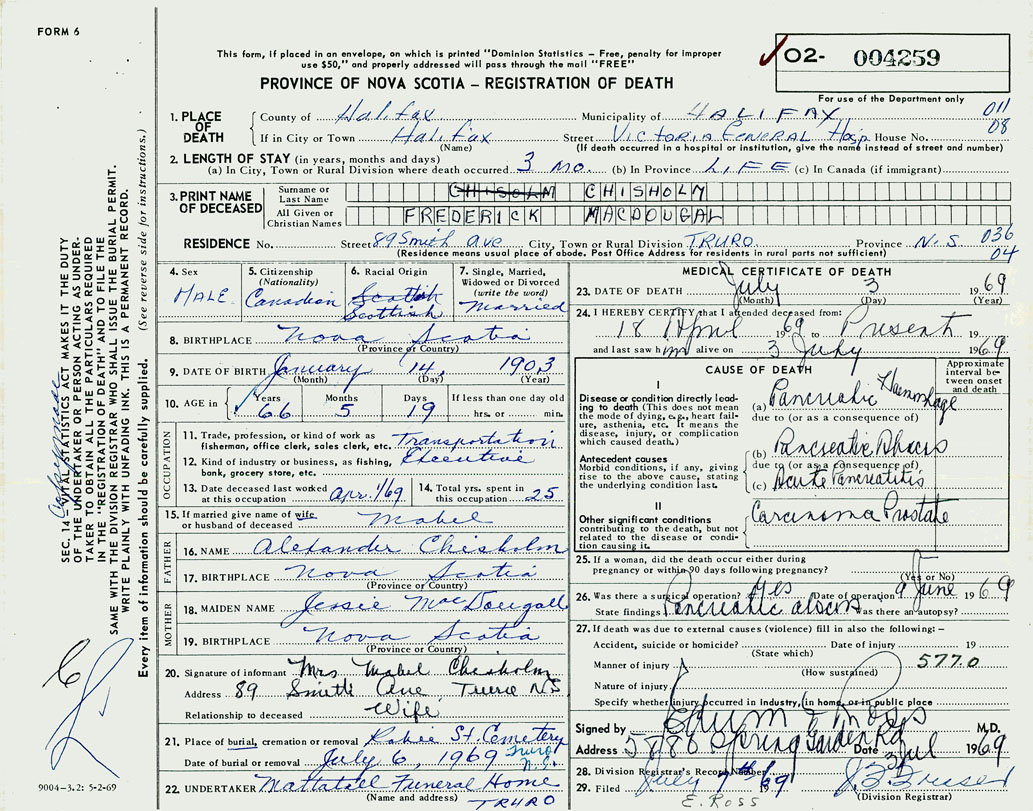 FORM 6
This form, if placed in an envelope, on which is printed "Dominion Statistics – Free, penalty for improper
use $50," and properly addressed will pass through the mail "FREE"
PROVINCE OF NOVA SCOTIA – REGISTRATION OF DEATH
02- 004259
For use of the Department only
1. PLACE OF DEATH County of Halifax Municipality of HALIFAX 011
If in City or Town Halifax Street VICTORIA GENERAL Hosp. House No. 08
(Name) (If death occurred in a hospital or institution, give the name instead of street and number)
2. LENGTH OF STAY (in years, months and days)
(a) In City, Town or Rural Division where death occurred 3 MO. (b) In Province LIFE (c) In Canada (if immigrant)
3. PRINT NAME OF DECEASED Surname or Last Name CHISOLM CHISHOLM
All Given or Christian Names FREDERICK MACDOUGAL
RESIDENCE No. Street 89 Smith Ave City, Town or Rural Division TRURO Province N.S. 036
(Residence means usual place of abode. Post Office Address for residents in rural parts not sufficient) 04
4. Sex MALE
5. Citizenship (Nationality) Canadian
6. Racial Origin Scottish Scottish
7. Single, Married, Widowed or Divorced (write the word) Married
8. BIRTHPLACE Nova Scotia
(Province or Country)
9. DATE OF BIRTH January 14, 1903
(Month) (Day) (Year)
10. AGE in Years 66 Months 5 Days 19 If less than one day old hrs. or min.
OCCUPATION
11. Trade, profession, or kind of work as fisherman, office clerk, sales clerk, etc. Transportation
12. Kind of industry or business, as fishing, bank, grocery store, etc. Executive
13. Date deceased last worked at this occupation Apr. 1/69
14. Total yrs. spent in this occupation 25
15. If married give name of wife or husband of deceased Mabel
FATHER
16. NAME Alexander Chisholm
17. BIRTHPLACE Nova Scotia
(Province or Country)
MOTHER
18. MAIDEN NAME Jessie MacDougall
19. BIRTHPLACE Nova Scotia
(Province or Country)
20. Signature of informant Mrs Mabel Chisholm
Address 89 Smith Ave Truro NS
Relationship to deceased Wife
21. Place of burial, cremation or removal Robie St. Cemetery
Truro N.S.
Date of burial or removal July 6, 1969
22. UNDERTAKER Mattatall Funeral Home
(Name and address) TRURO
MEDICAL CERTIFICATE OF DEATH
23. DATE OF DEATH July 3 1969
(Month) (Day) (Year)
24. I HEREBY CERTIFY that I attended deceased from:
18 April 1969 to Present 19
and last saw him alive on 3 July 1969
CAUSE OF DEATH
Approximate interval between onset and death
I
Disease or condition directly leading to death (This does not mean the mode of dying, e.g., heart failure, asthenia, etc. It means the disease, injury, or complication which caused death.)
(a) Pancreatic Haemorrhage
due to (or as a consequence of)
Antecedent causes
Morbid conditions, if any, giving rise to the above cause, stating the underlying condition last.
(b) Pancreatic Abscess
due to (or as a consequence of)
(c) Acute Pancreatitis
II
Other significant conditions contributing to the death, but not related to the disease or condition causing it.
Carcinoma Prostate
25. If a woman, did the death occur either during
pregnancy or within 90 days following pregnancy?
(Yes or No)
26. Was there a surgical operation? Yes Date of operation 9 June 1969
State findings Pancreatic abscess Was there an autopsy?
27. If death was due to external causes (violence) fill in also the following: –
Accident, suicide or homicide? Date of injury 19
(State which)
Manner of injury 577.0
(How sustained)
Nature of injury
Specify whether injury occurred in industry, in home, or in public place
Signed by M.D.
Address 5888 Spring Garden Rd Date 3 Jul 1969
28. Division Registrar's Record Number
29. Filed July 7th 69
(Division Registrar)
E. ROSS
SEC. 14 VITAL STATISTICS ACT MAKES IT THE DUTY
OF THE UNDERTAKER OR PERSON ACTING AS UNDER-
TAKER TO OBTAIN ALL THE PARTICULARS REQUIRED
IN THE "REGISTRATION OF DEATH" AND TO FILE THE
SAME WITH THE DIVISION REGISTRAR WHO SHALL ISSUE THE BURIAL PERMIT.
WRITE PLAINLY WITH UNFADING INK. THIS IS A PERMANENT RECORD.
Every item of information should be carefully supplied. (See reverse side for instructions.)
9004-3.2: 5-2-69